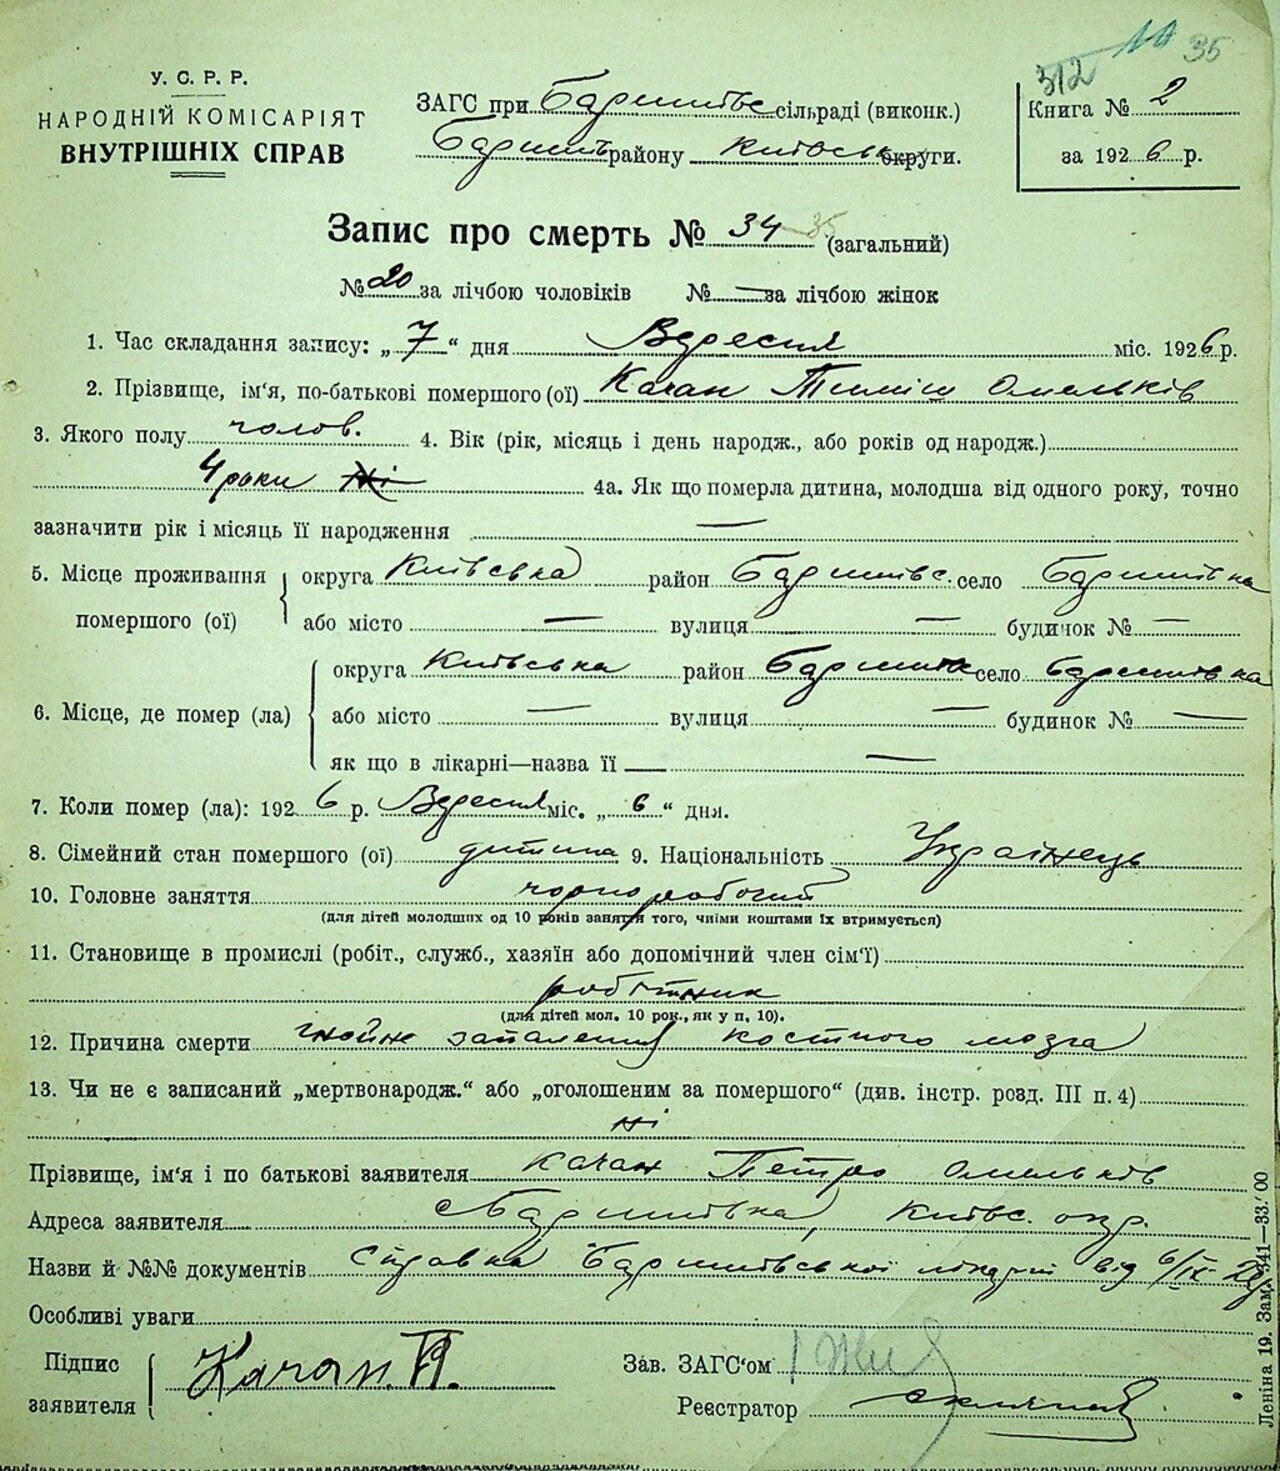 312 10 35
У. С. Р. Р.
НАРОДНІЙ КОМІСАРІЯТ
ВНУТРІШНІХ СПРАВ
ЗАГС при Баришівс сільраді (виконк.)
Баришів району Київськ округи.
Книга № 2
за 1926 р.
Запис про смерть № 34 35 (загальний)
№ 20 за лічбою чоловіків № — за лічбою жінок
1. Час складання запису: „7“ дня Вересня міс. 1926 р.
2. Прізвище, ім‘я, по-батькові помершого (ої) Качан Тиміш Омельків
3. Якого полу чолов. 4. Вік (рік, місяць і день народж., або років од народж.)
4 роки ні 4а. Як що померла дитина, молодша від одного року, точно
зазначити рік і місяць її народження —
5. Місце проживання помершого (ої) округа Київська район Баришівс. село Баришівка
або місто — вулиця — будинок № —
6. Місце, де помер (ла) округа Київська район Баришів село Баришівка
або місто — вулиця — будинок № —
як що в лікарні—назва її —
7. Коли помер (ла): 1926 р. Вересня міс. „6“ дня.
8. Сімейний стан помершого (ої) дитина 9. Національність Українець
10. Головне заняття чорноробочий
(для дітей молодших од 10 років заняття того, чиїми коштами їх втримується)
11. Становище в промислі (робіт., служб., хазяїн або допомічний член сім‘ї)
робітник
(для дітей мол. 10 рок., як у п. 10).
12. Причина смерти гнойне запалення костного мозга
13. Чи не є записаний „мертвонародж.“ або „оголошеним за помершого“ (див. інстр. розд. III п. 4)
ні
Прізвище, ім‘я і по батькові заявителя Качан Петро Омельків
Адреса заявителя Баришівка, Київс. окр.
Назви й №№ документів Справка Баришівської від 6/IX-26
Особливі уваги
Підпис заявителя Качан. П.
Зав. ЗАГС‘ом
Реєстратор
Леніна 19. Зам. 341—33.‘00